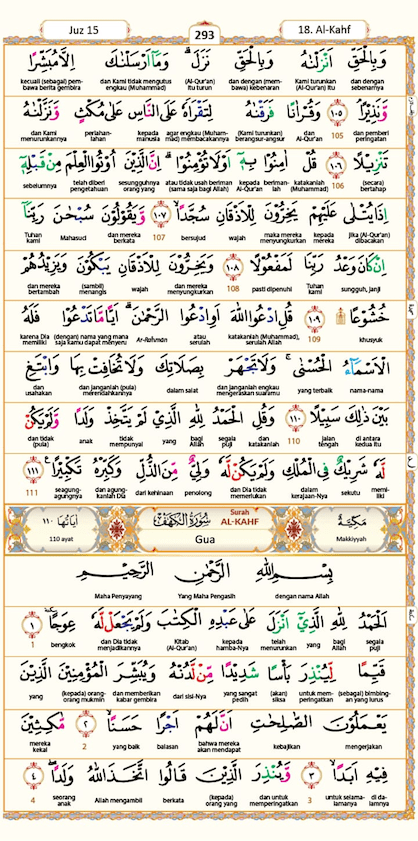 Juz 15
293
18. Al-Kahf
وَبِالْحَقِّ اَنْزَلْنٰهُ وَبِالْحَقِّ نَزَلَ ۗ وَمَآ اَرْسَلْنٰكَ اِلَّا مُبَشِّرًا
kecuali (sebagai) pem-bawa berita gembira dan Kami tidak mengutus engkau (Muhammad) (Al-Qur'an) itu turun dan dengan (mem-bawa) kebenaran Kami turunkan (Al-Qur'an) dan dengan sebenarnya
وَّنَذِيْرًا ۘ ١٠٥ وَقُرْاٰنًا فَرَقْنٰهُ لِتَقْرَاَهٗ عَلَى النَّاسِ عَلٰى مُكْثٍ وَّنَزَّلْنٰهُ
dan Kami menurunkannya perlahan-lahan kepada manusia agar engkau (Muham-mad) membacakannya (Kami turunkan) berangsur-angsur dan Al-Qur'an 105 dan pemberi peringatan
تَنْزِيْلًا ١٠٦ قُلْ اٰمِنُوْا بِهٖٓ اَوْ لَا تُؤْمِنُوْا ۗ اِنَّ الَّذِيْنَ اُوْتُوا الْعِلْمَ مِنْ قَبْلِهٖٓ
sebelumnya telah diberi pengetahuan sesungguhnya orang yang atau tidak usah beriman (sama saja bagi Allah) kepada Al-Qur'an beriman-lah katakanlah (Muhammad) 106 (secara) bertahap
اِذَا يُتْلٰى عَلَيْهِمْ يَخِرُّوْنَ لِلْاَذْقَانِ سُجَّدًا ۙ ١٠٧ وَّيَقُوْلُوْنَ سُبْحٰنَ رَبِّنَآ
Tuhan kami Mahasuci dan mereka berkata 107 bersujud wajah maka mereka menyungkurkan kepada mereka jika (Al-Qur'an) dibacakan
اِنْ كَانَ وَعْدُ رَبِّنَا لَمَفْعُوْلًا ١٠٨ وَيَخِرُّوْنَ لِلْاَذْقَانِ يَبْكُوْنَ وَيَزِيْدُهُمْ
dan mereka bertambah (sambil) menangis wajah dan mereka menyungkurkan 108 pasti dipenuhi Tuhan kami sungguh, janji
خُشُوْعًا ۩ ١٠٩ قُلِ ادْعُوا اللّٰهَ اَوِ ادْعُوا الرَّحْمٰنَ ۗ اَيًّا مَّا تَدْعُوْا فَلَهُ
karena Dia memiliki (dengan) nama yang mana saja kamu dapat menyeru Ar-Rahman atau serulah katakanlah (Muhammad), serulah Allah 109 khusyuk
الْاَسْمَاۤءُ الْحُسْنٰى ۚ وَلَا تَجْهَرْ بِصَلَاتِكَ وَلَا تُخَافِتْ بِهَا وَابْتَغِ
dan usahakan dan janganlah (pula) merendahkannya dalam salat dan janganlah engkau mengeraskan suaramu yang terbaik nama-nama
بَيْنَ ذٰلِكَ سَبِيْلًا ١١٠ وَقُلِ الْحَمْدُ لِلّٰهِ الَّذِيْ لَمْ يَتَّخِذْ وَلَدًا وَّلَمْ يَكُنْ
dan tidak (pula) anak tidak mempunyai yang bagi Allah segala puji dan katakanlah 110 jalan tengah di antara kedua itu
لَّهٗ شَرِيْكٌ فِى الْمُلْكِ وَلَمْ يَكُنْ لَّهٗ وَلِيٌّ مِّنَ الذُّلِّ وَكَبِّرْهُ تَكْبِيْرًا ١١١
111 seagung-agungnya dan agung-kanlah Dia dari kehinaan penolong dan Dia tidak memerlukan dalam kerajaan-Nya sekutu memi-liki
اٰيَاتُهَا ١١٠
110 ayat
سُوْرَةُ الْكَهْفِ
Surah
AL-KAHF
Gua
مَكِّيَّةٌ
Makkiyyah
بِسْمِ اللّٰهِ الرَّحْمٰنِ الرَّحِيْمِ
Maha Penyayang Yang Maha Pengasih dengan nama Allah
اَلْحَمْدُ لِلّٰهِ الَّذِيْٓ اَنْزَلَ عَلٰى عَبْدِهِ الْكِتٰبَ وَلَمْ يَجْعَلْ لَّهٗ عِوَجًا ۜ ١
1 bengkok dan Dia tidak menjadikannya Kitab (Al-Qur'an) kepada hamba-Nya telah menurunkan yang bagi Allah segala puji
قَيِّمًا لِّيُنْذِرَ بَأْسًا شَدِيْدًا مِّنْ لَّدُنْهُ وَيُبَشِّرَ الْمُؤْمِنِيْنَ الَّذِيْنَ
yang (kepada) orang-orang mukmin dan memberikan kabar gembira dari sisi-Nya yang sangat pedih (akan) siksa untuk mem-peringatkan (sebagai) bimbing-an yang lurus
يَعْمَلُوْنَ الصّٰلِحٰتِ اَنَّ لَهُمْ اَجْرًا حَسَنًا ۙ ٢ مّٰكِثِيْنَ
mereka kekal 2 yang baik balasan bahwa mereka akan mendapat kebajikan mengerjakan
فِيْهِ اَبَدًا ۙ ٣ وَّيُنْذِرَ الَّذِيْنَ قَالُوا اتَّخَذَ اللّٰهُ وَلَدًا ۖ ٤
4 seorang anak Allah mengambil berkata (kepada) orang yang dan untuk memperingatkan 3 untuk selama-lamanya di da-lamnya